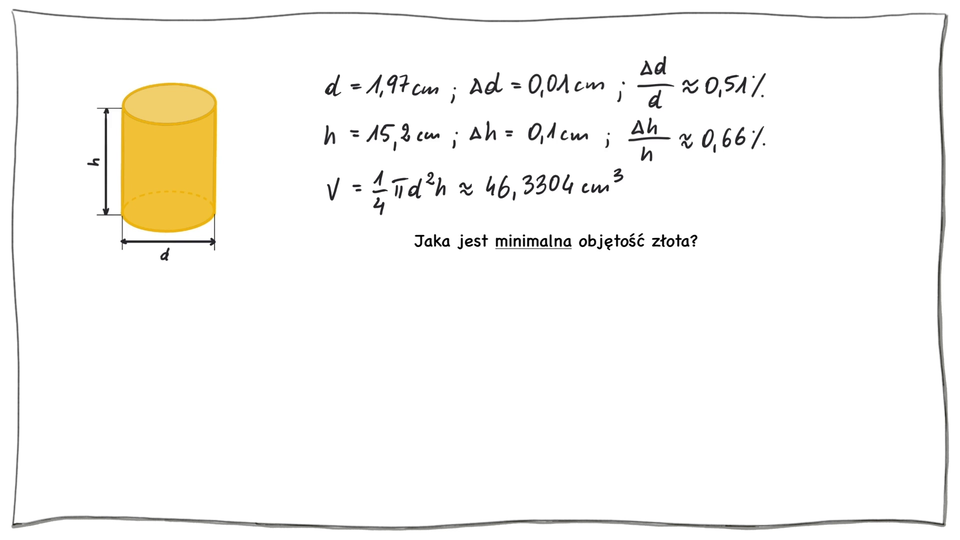 d = 1,97 cm ; Δd = 0,01 cm ; Δd/d ≈ 0,51%
h = 15,2 cm ; Δh = 0,1 cm ; Δh/h ≈ 0,66%
V = 1/4 πd²h ≈ 46,3304 cm³
Jaka jest minimalna objętość złota?
h
d